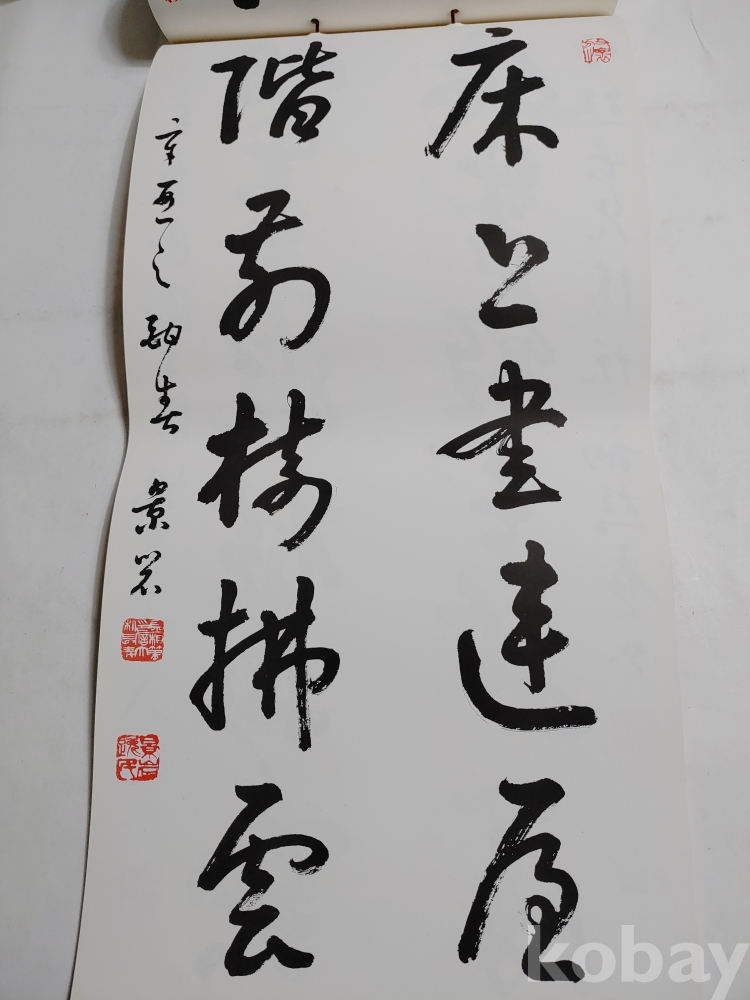 床上書連屋
階前樹拂雲
辛酉之春 景岩
kobay